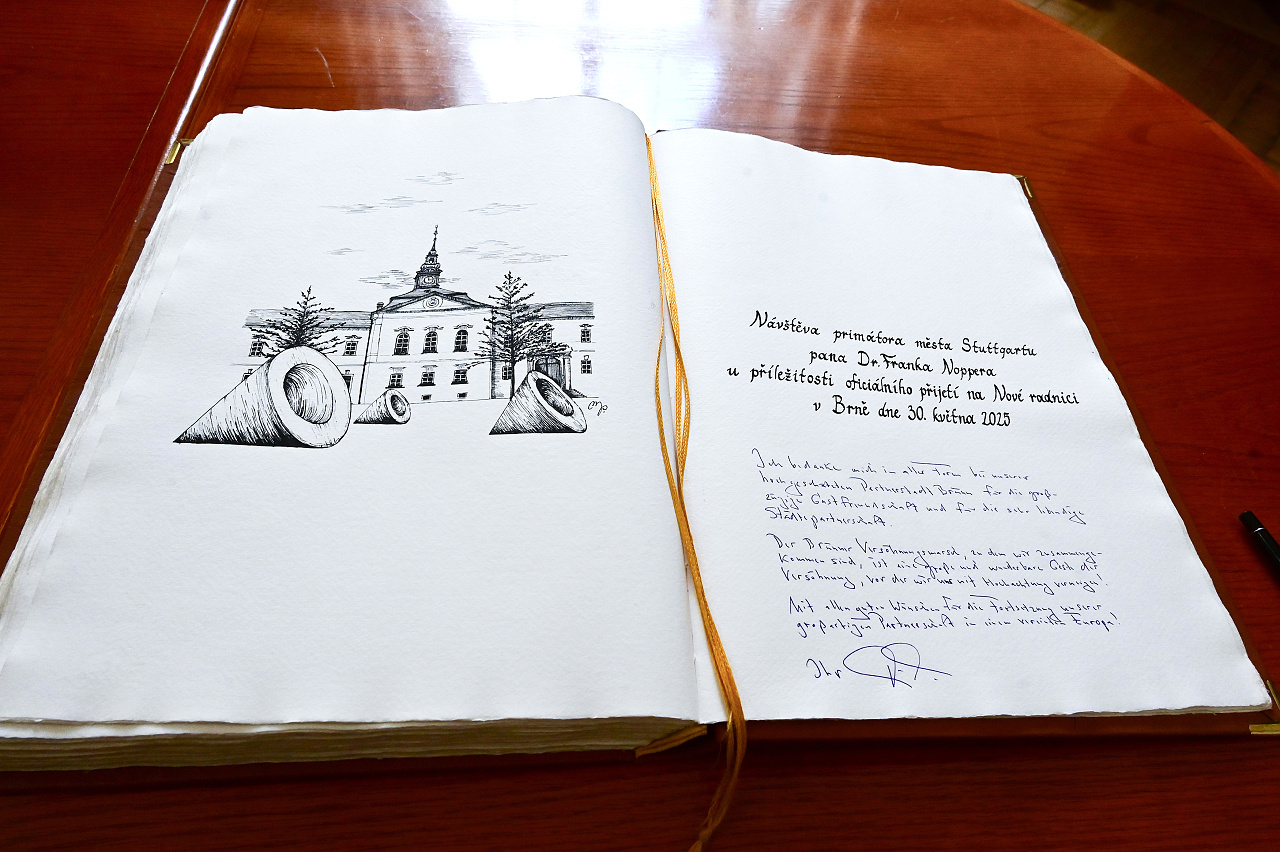 Návštěva primátora města Stuttgartu
pana Dr. Franka Noppera
u příležitosti oficiálního přijetí na Nové radnici
v Brně dne 30. května 2025
Ich bedanke mich in aller Form bei unserer
hochgeschätzten Partnerstadt Brünn für die groß-
zügige Gastfreundschaft und für die sehr lebendige
Städtepartnerschaft.
Der Brünner Versöhnungsmarsch, zu dem wir zusammenge-
kommen sind, ist eine große und wunderbare Geste der
Versöhnung, vor der wir uns mit Hochachtung verneigen!
Mit allen guten Wünschen für die Fortsetzung unserer
großartigen Partnerschaft in einem vereinten Europa!
Ihr